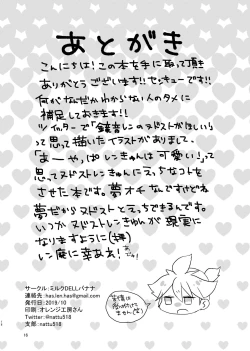 あとがき
こんにちは！この本を手に取って頂き
ありがとうございます!!センキューです!!
何がなんだかわからない人のタメに
補足しておきます!!
ツイッターで「鏡音レンのヌドストがほしい」
って思って描いたイラストがありまして、
「あーや、ぱレンきゅんは可愛い！」って
思ってヌドストレンきゅんにえっちなコトを
させた本です。夢オチなんですけどね
夢だからヌドストとえっちできまんです。
いつかヌドストレンきゅんが現実に
なりますように(拝)
レン廃に幸あれ!
サークル:ミルクDELLバナナ
連絡先:has.len.has@gmail.com
発行日:2019/10
印刷:オレンジ工房さん
Twitter:@nattu518
支部:nattu518
18